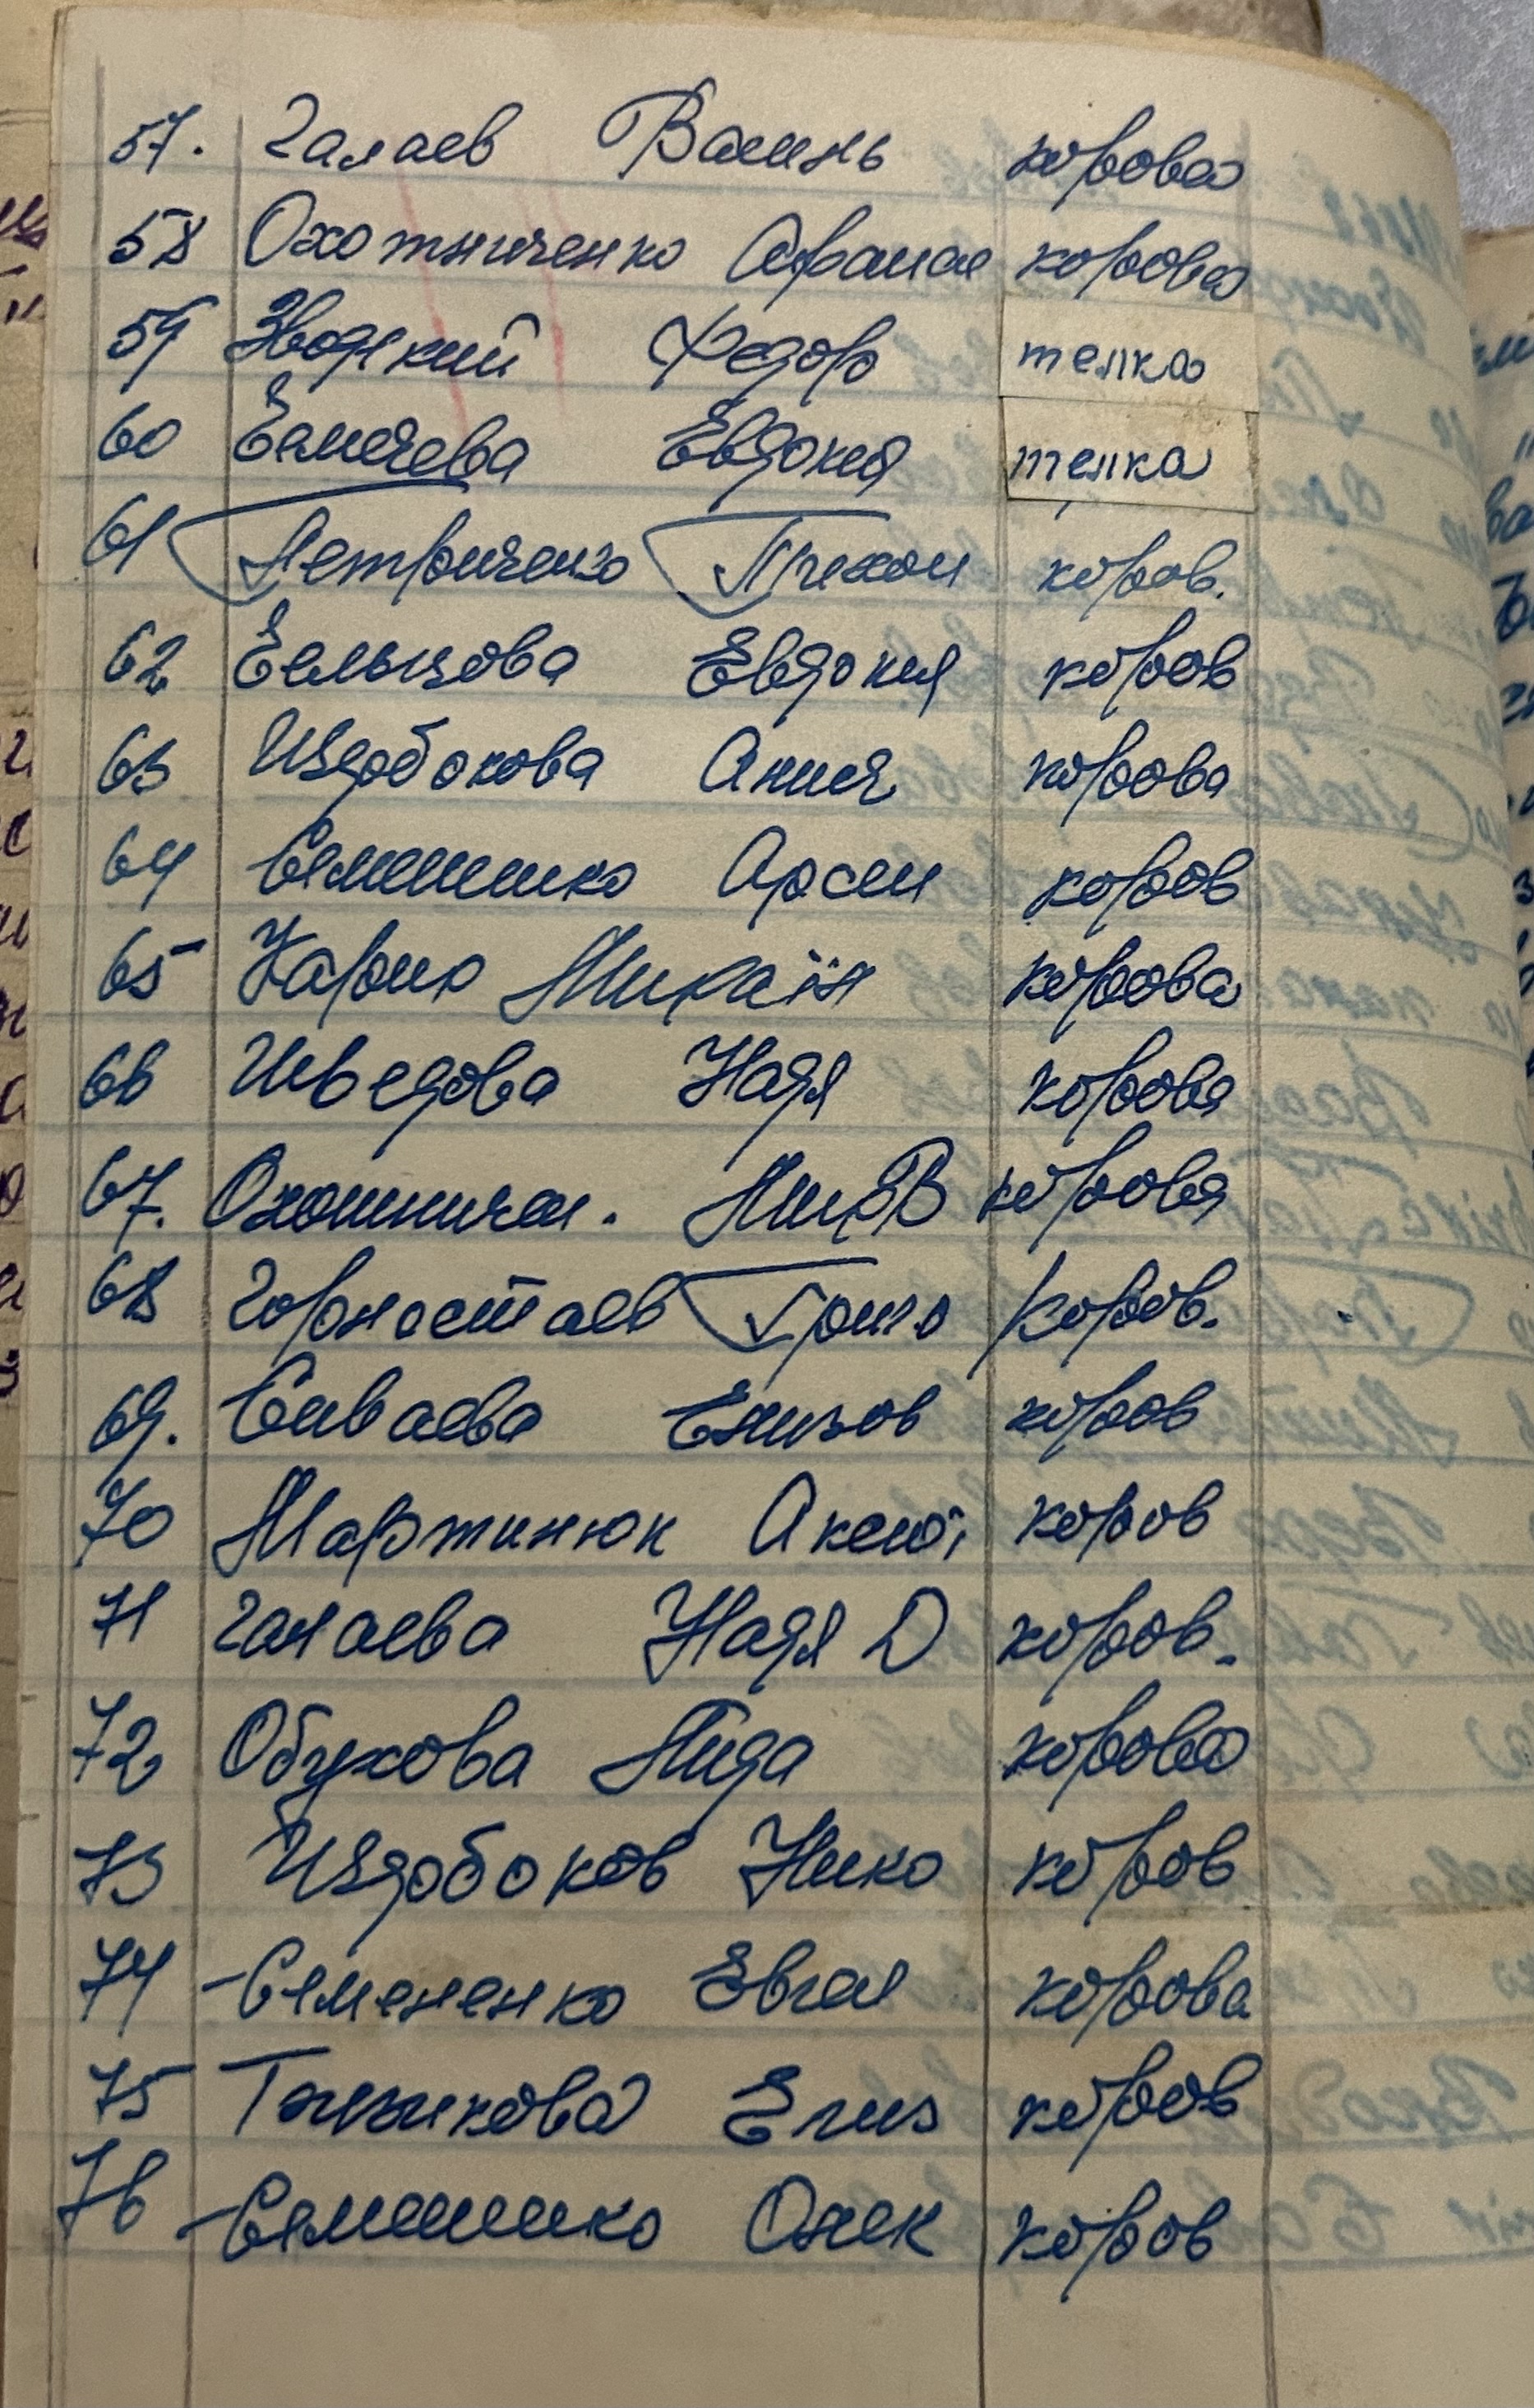 57. Галаев Василь корова
58 Охотниченко Афанас корова
59 Зводский Федор телка
60 Евдокия телка
61 Петриченко Тихон коров.
62 Ельцова Евдокия коров
63 Издобокова Анна корова
64 Арсен коров
65 Харин Михаїл корова
66 Шведова Надя корова
67. Охотничен. корова
68 Горностаев Григо коров.
69. Саваева Елизов коров
70 Мартинюк Аксюї коров
71 Галаева Надя Д коров.
72 Обухова Лида корова
73 Издобоков Нико коров
74 Семененко Евген корова
75 Елиз коров
76 Олек коров